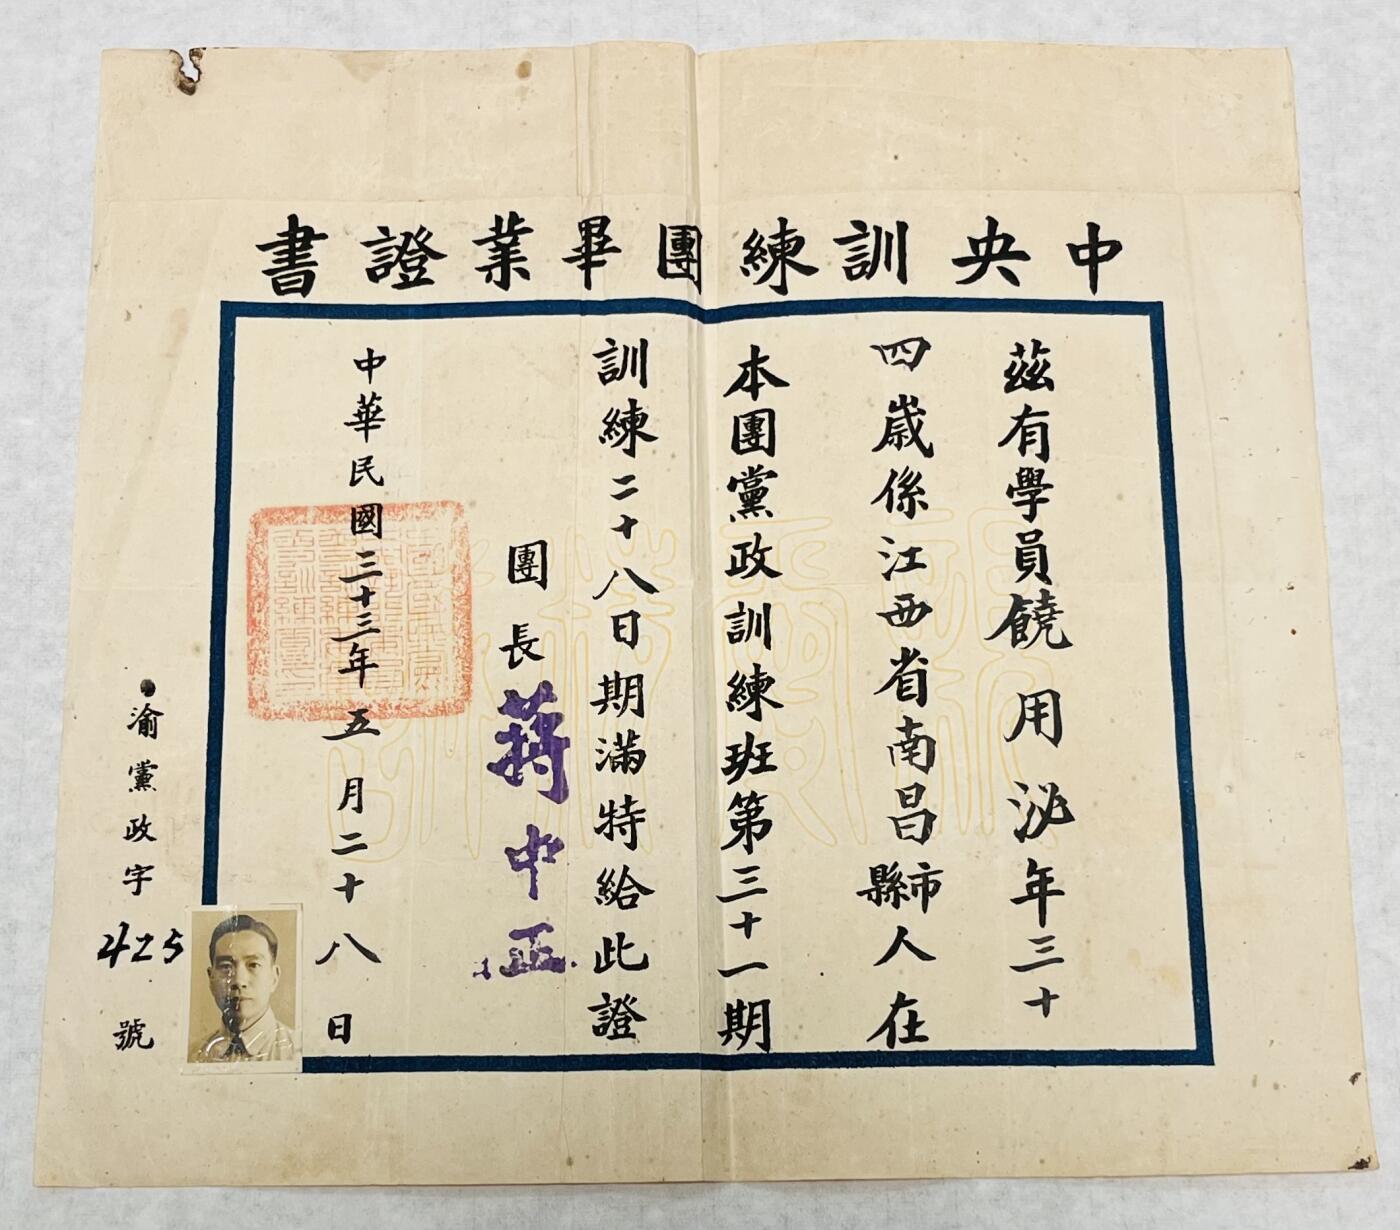 中央訓練團畢業證書
茲有學員饒用泌年三十
四歲係江西省南昌市縣人在
本團黨政訓練班第三十一期
訓練二十八日期滿特給此證
團長蔣中正
中華民國三十三年五月二十八日
渝黨政字425號